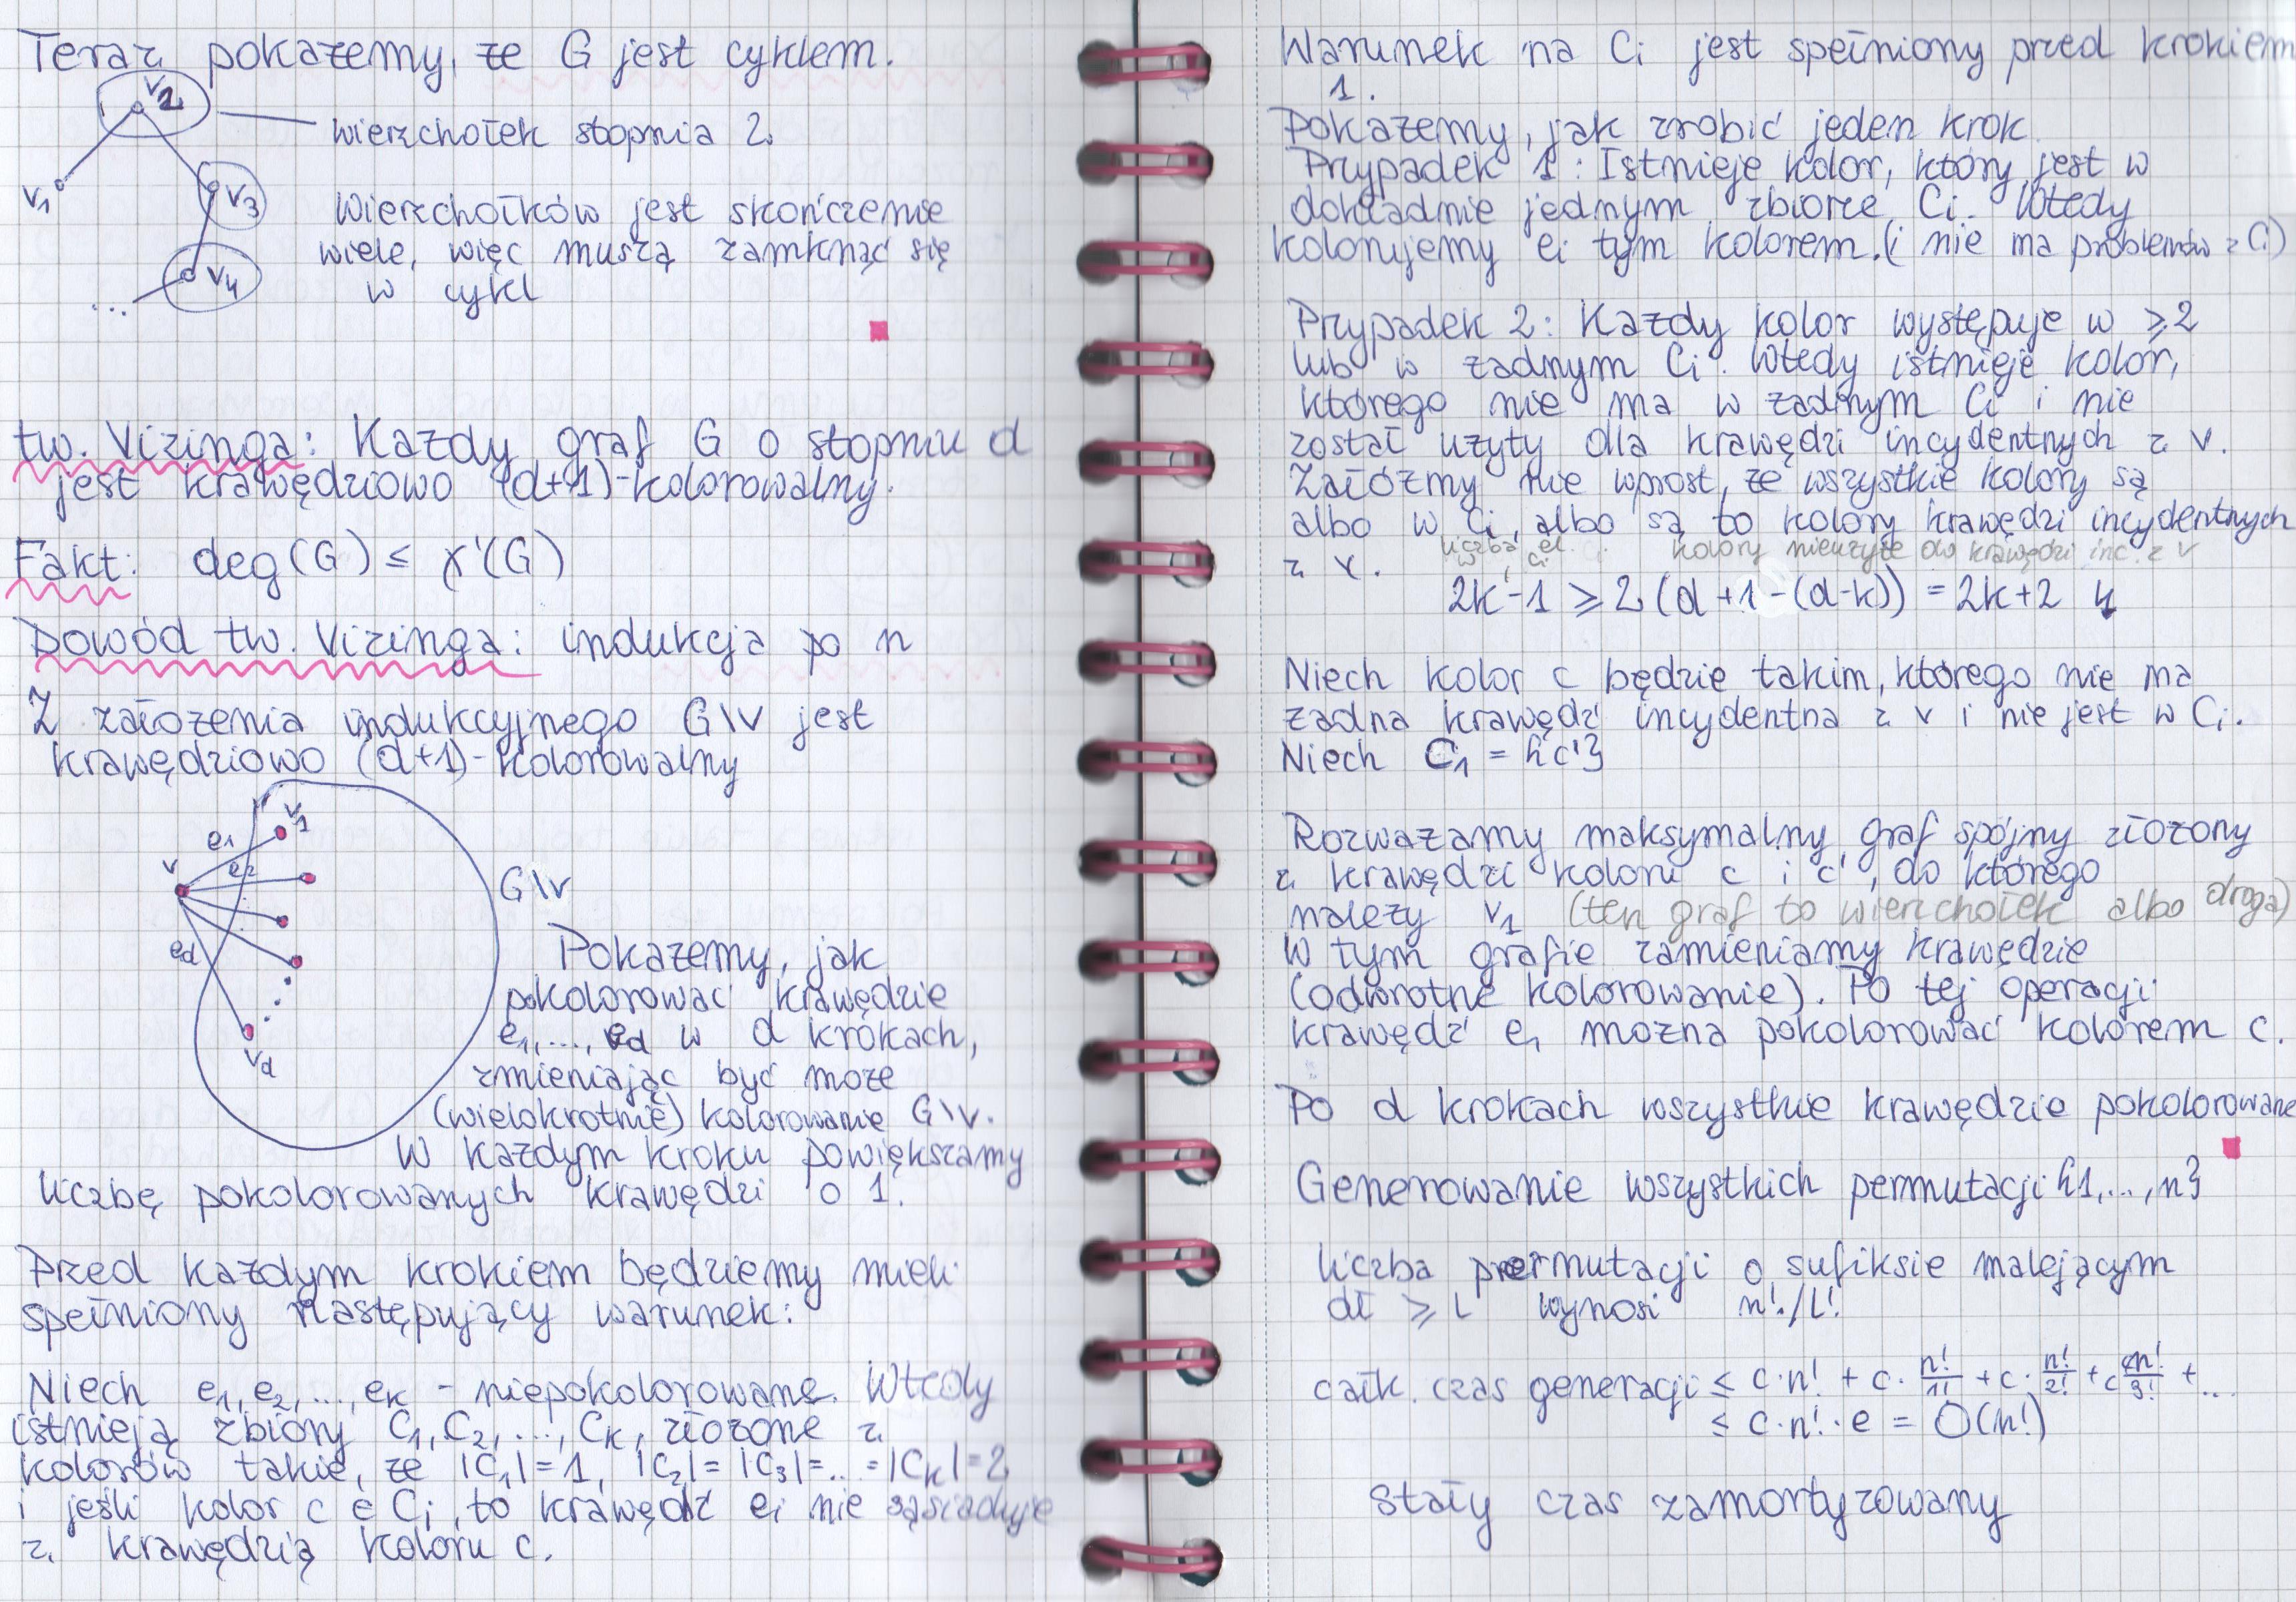 Teraz pokażemy, że G jest cyklem.
v2
wierzchołek stopnia 2
v1
v3
Wierzchołków jest skończenie
wiele, więc muszą zamknąć się
v4
w cykl
...
tw. Vizinga: Każdy graf G o stopniu d
jest krawędziowo (d+1)-kolorowalny.
Fakt: deg(G) ≤ χ'(G)
Dowód tw. Vizinga: indukcja po n
Z założenia indukcyjnego G\v jest
krawędziowo (d+1)-kolorowalny
v1
e1
v
e2
G\v
ed
vd
Pokażemy, jak
pokolorować krawędzie
e1,..., ed w d krokach,
zmieniając być może
(wielokrotnie) kolorowanie G\v.
W każdym kroku powiększamy
liczbę pokolorowanych krawędzi o 1.
Przed każdym krokiem będziemy mieli
spełniony następujący warunek:
Niech e1, e2, ..., ek - niepokolorowane. Wtedy
istnieją zbiory C1, C2, ..., Ck, złożone z
kolorów takie, że |C1|=1, |C2|=|C3|=...=|Ck|=2
i jeśli kolor c ∈ Ci, to krawędź ei nie sąsiaduje
z krawędzią koloru c.
Warunek na Ci jest spełniony przed krokiem
1.
Pokażemy, jak zrobić jeden krok.
Przypadek 1: Istnieje kolor, który jest w
dokładnie jednym zbiorze Ci. Wtedy
kolorujemy ei tym kolorem. (i nie ma problemów z Ci)
Przypadek 2: Każdy kolor występuje w ≥2
lub w żadnym Ci. Wtedy istnieje kolor,
którego nie ma w żadnym Ci i nie
został użyty dla krawędzi incydentnych z v.
Załóżmy nie wprost, że wszystkie kolory są
albo w Ci, albo są to kolory krawędzi incydentnych
z v.
liczba el. w Ci
kolory nieużyte do krawędzi inc. z v
2k-1 ≥ 2(d+1-(d-k)) = 2k+2 ↯
Niech kolor c będzie takim, którego nie ma
żadna krawędź incydentna z v i nie jest w Ci.
Niech C1 = {c'}
Rozważamy maksymalny graf spójny złożony
z krawędzi koloru c i c', do którego
należy v1 (ten graf to wierzchołek albo droga)
W tym grafie zamieniamy krawędzie
(odwrotne kolorowanie). Po tej operacji
krawędź e1 można pokolorować kolorem c.
Po d krokach wszystkie krawędzie pokolorowane
Generowanie wszystkich permutacji {1,...,n}
liczba permutacji o sufiksie malejącym
dł ≥ l wynosi n!/l!
całk. czas generacji ≤ c·n! + c·n!/1! + c·n!/2! + c n!/3! + ...
≤ c·n!·e = O(n!)
stały czas zamortyzowany